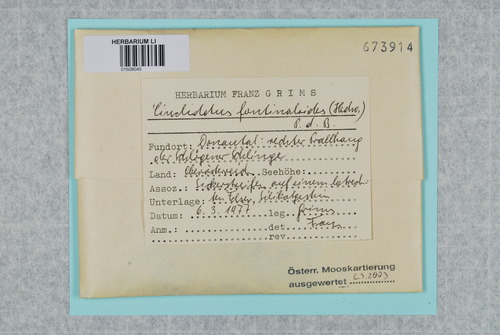 HERBARIUM LI
01608045
673914
HERBARIUM FRANZ GRIMS
Cinclidotus fontinaloides (Hedw.)
P. d. B.
Fundort: Donautal: rechter Prallhang
der Schlögener Schlinge
Land: Oberösterreich Seehöhe:
Assoz.: auf einem
Unterlage: Silikatgestein
Datum: 6. 3. 1977 leg. Grims
Anm.: det. Franz
rev.
Österr. Mooskartierung
ausgewertet